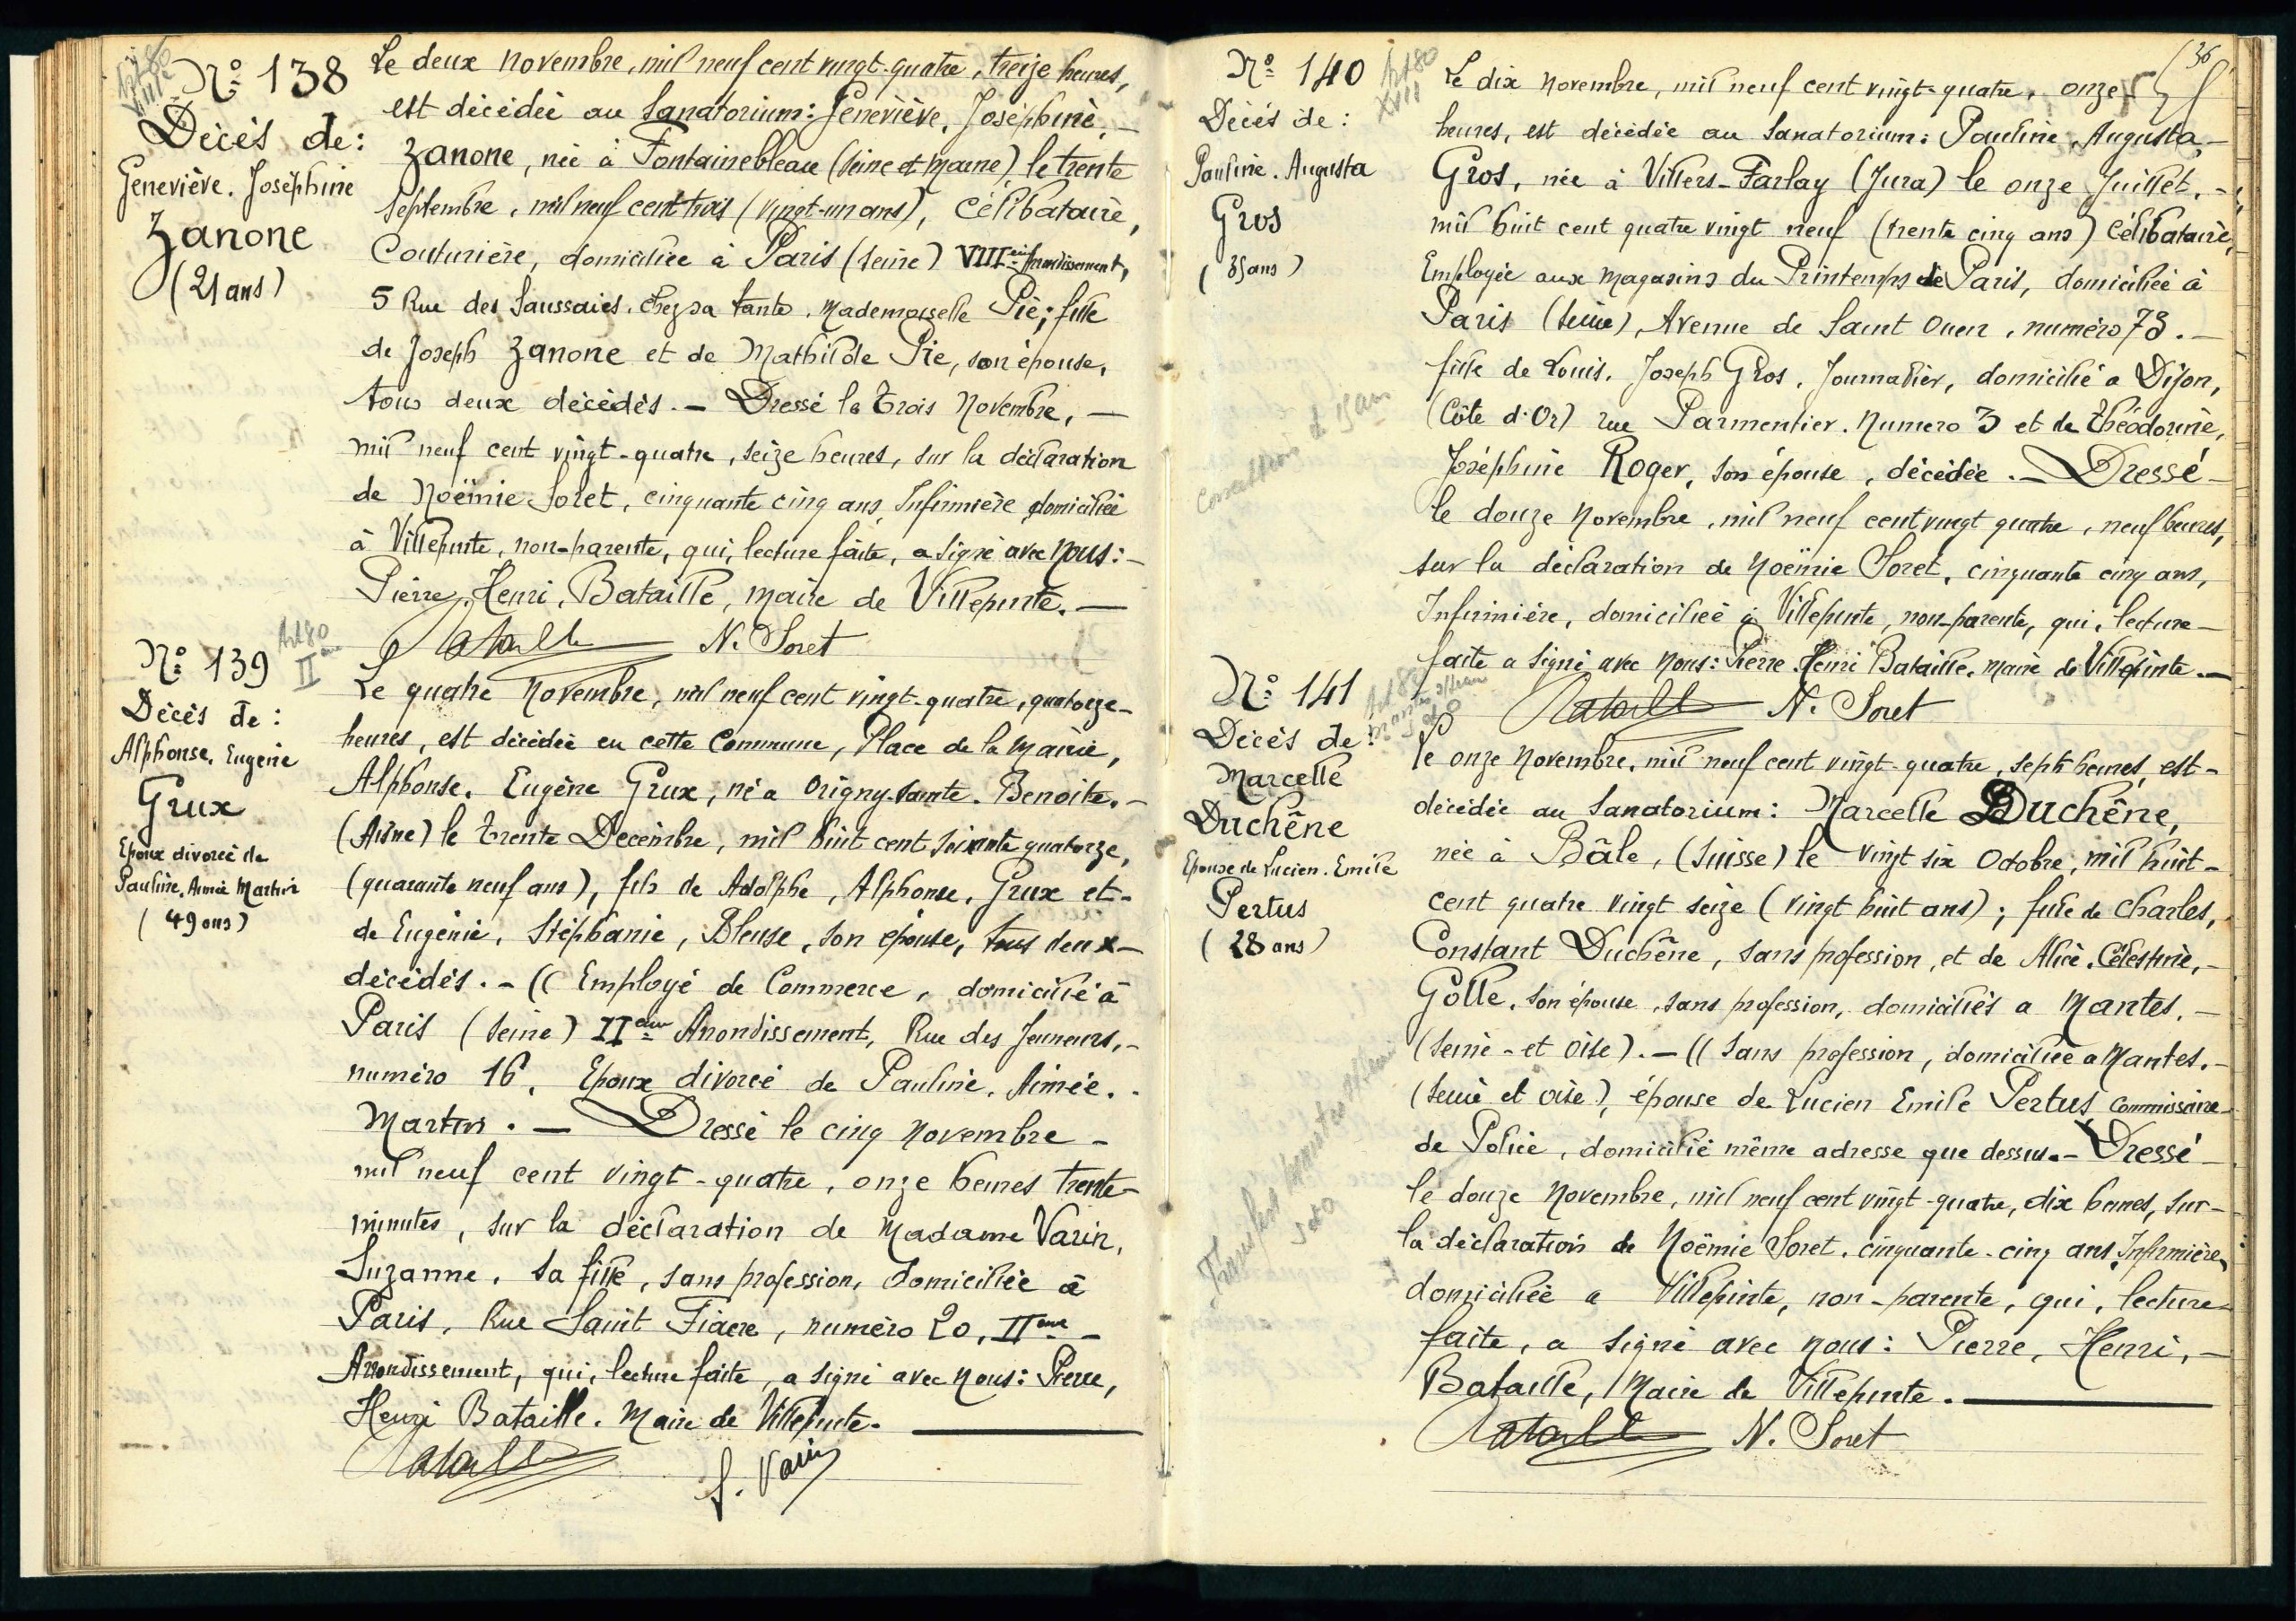 Nº 138
Décès de :
Geneviève. Joséphine
Zanone
(21 ans)
Le deux Novembre, mil neuf cent vingt-quatre, treize heures,
est décédée au Sanatorium : Geneviève, Joséphine, —
Zanone, née à Fontainebleau (Seine et Marne) le trente
Septembre, mil neuf cent trois (vingt-un ans), Célibataire,
Couturière, domiciliée à Paris (Seine) VIIIème Arrondissement,
5 Rue des Saussaies. chez sa tante. Mademoiselle Pie ; fille
de Joseph Zanone et de Mathilde Pie, son épouse,
tous deux décédés. — Dressé le Trois Novembre, —
mil neuf cent vingt-quatre, seize heures, sur la déclaration
de Noëmie Soret, cinquante cinq ans, Infirmière domiciliée
à Villepinte, non-parente, qui, lecture faite, a signé avec Nous : —
Pierre, Henri, Bataille, Maire de Villepinte. —
Bataille N. Soret
Nº 139
Art 80
IIème
Décès de :
Alphonse. Eugène
Grux
Epoux divorcé de
Pauline. Aimée Martin
(49 ans)
Le quatre Novembre, mil neuf cent vingt-quatre, quatorze -
heures, est décédée en cette Commune, Place de la Mairie,
Alphonse. Eugène Grux, né a Origny-Sainte. Benoite. -
(Aisne) le trente Decembre, mil huit cent soixante quatorze,
(quarante neuf ans), fils de Adolphe, Alphonse. Grux et -
de Eugénie, Stéphanie, Bleuse, son épouse, tous deux —
décédés. - (( Employé de Commerce, domicilié à
Paris (Seine) IIème Arrondissement, Rue des Jeuneurs, -
numéro 16. Epoux divorcé de Pauline. Aimée. -
Martin. — Dressé le cinq Novembre -
mil neuf cent vingt-quatre, onze heures trente -
minutes, sur la déclaration de Madame Varin,
Suzanne, sa fille, sans profession, domiciliée à
Paris, Rue Saint Fiacre, numéro 20, IIème -
Arrondissement, qui, lecture faite, a signé avec Nous : Pierre,
Henri Bataille. Maire de Villepinte. —
Bataille S. Varin
36
Nº 140
Art 80
XVII
Décès de :
Pauline. Augusta
Gros
(35 ans)
Le dix Novembre, mil neuf cent vingt-quatre, onze -
heures, est décédée au Sanatorium : Pauline, Augusta, -
Gros, née à Villers-Farlay (Jura) le onze Juillet, -
mil huit cent quatre vingt neuf (trente cinq ans) Célibataire,
Employée aux magasins du Printemps de Paris, domiciliée à
Paris (Seine), Avenue de Saint Ouen, numéro 73. —
fille de Louis, Joseph Gros, Journalier, domicilié a Dijon,
(Côte d'Or) rue Parmentier. Numero 3 et de Théodorine,
Joséphine Roger, son épouse, décédée. — Dressé —
le douze Novembre, mil neuf cent vingt quatre, neuf heures,
sur la déclaration de Noëmie Soret, cinquante cinq ans,
Infirmière, domiciliée à Villepinte, non-parente, qui, lecture —
faite a signé avec Nous : Pierre Henri Bataille. Maire de Villepinte. —
Bataille N. Soret
Nº 141
Décès de :
Marcelle
Duchêne
Epouse de Lucien. Emile
Pertus
(28 ans)
le onze Novembre, mil neuf cent vingt-quatre, sept heures, est -
décédée au Sanatorium : Marcelle Duchêne,
née à Bâle, (Suisse) le vingt six Octobre, mil huit -
cent quatre vingt seize (vingt huit ans) ; fille de Charles,
Constant Duchêne, sans profession, et de Alice. Célestine, -
Gölle, son épouse, sans profession, domiciliés a Mantes, —
(Seine - et Oise). — (( Sans profession, domiciliée a Mantes. -
(Seine et oise), épouse de Lucien Emile Pertus Commissaire -
de Police, domicilié même adresse que dessus. - Dressé —
le douze Novembre, mil neuf cent vingt-quatre, dix heures, sur -
la déclaration de Noëmie Soret, cinquante-cinq ans, Infirmière,
domiciliée a Villepinte, non-parente, qui, lecture -
faite, a signé avec Nous : Pierre, Henri, —
Bataille, Maire de Villepinte. —
Bataille N. Soret